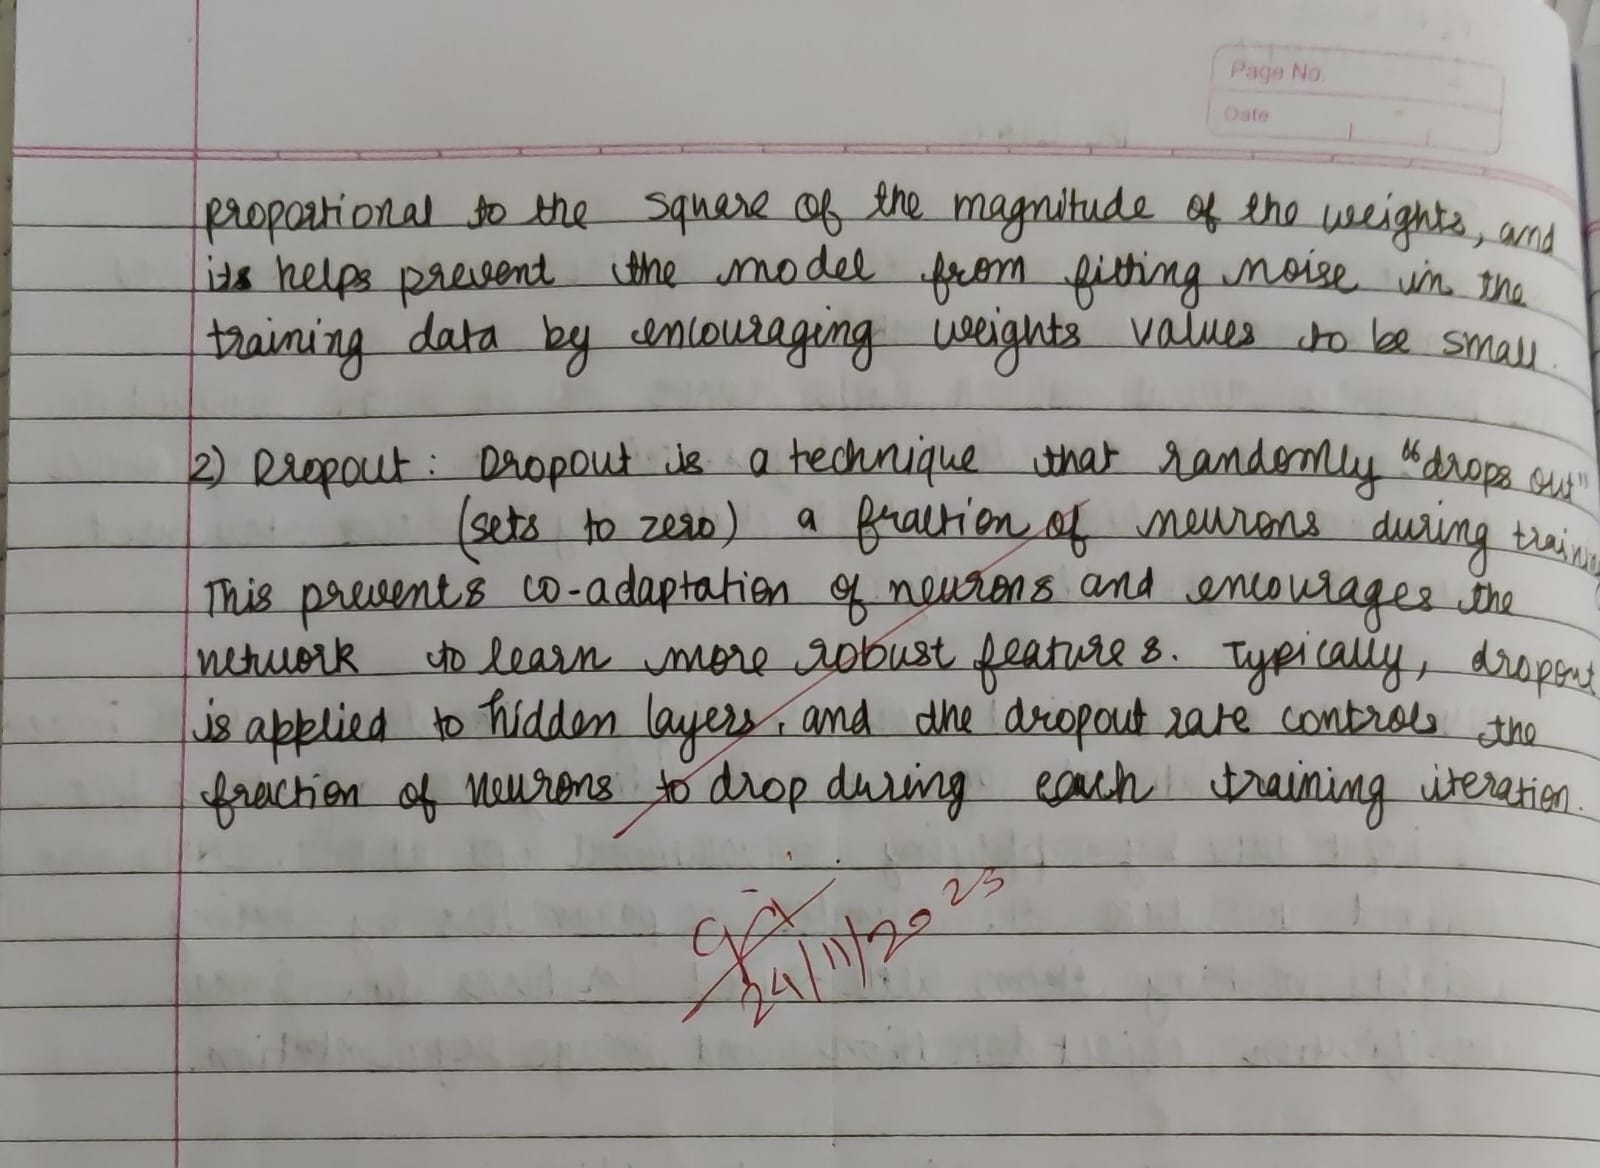 Page No.
Date
proportional to the square of the magnitude of the weights, and
its helps prevent the model from fitting noise in the
training data by encouraging weights values to be small.
2) Dropout : Dropout is a technique that randomly "drops out"
(sets to zero) a fraction of neurons during
This prevents co-adaptation of neurons and encourages the
network to learn more robust features. Typically, dropout
is applied to hidden layers, and the dropout rate controls the
fraction of neurons to drop during each training iteration.
24/11/2023